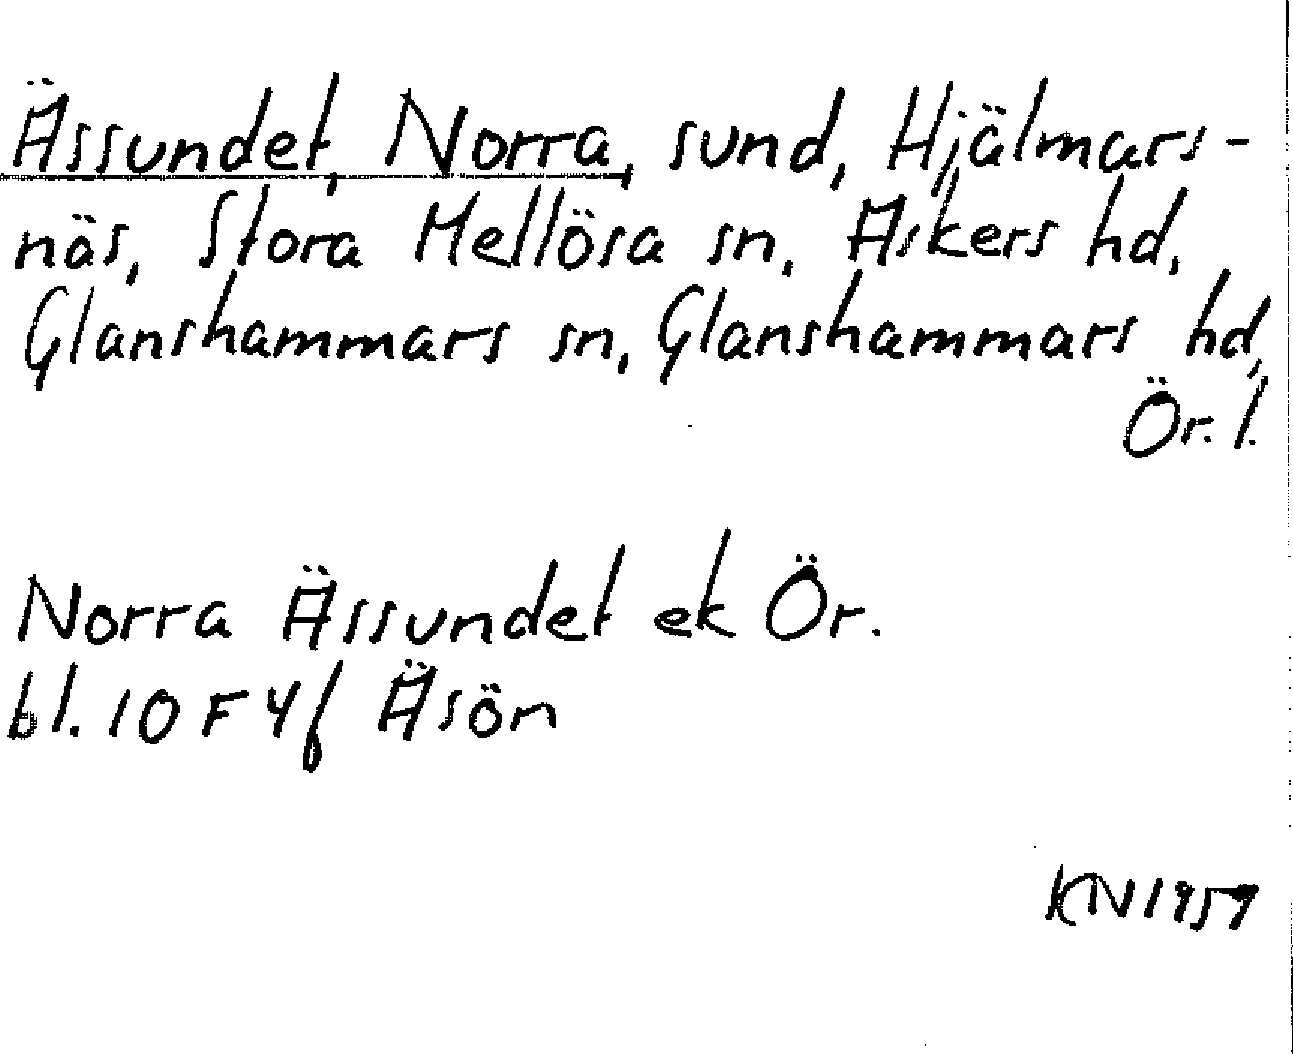 Ässundet, Norra, sund, Hjälmars-
näs, Stora Mellösa sn, Askers hd,
Glanshammars sn, Glanshammars hd,
Ör. l.
Norra Ässundet ek Ör.
bl. 10 F 4f Äsön
KN 1959